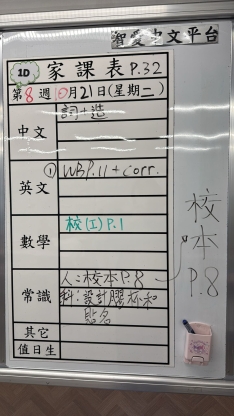 智愛中文平台
1D 家課表 P.32
第8週 10月21日(星期二)
中文 詞+造
英文 ① WB P.11 + corr.
數學 校(工)P.1
常識 人:校本P.8
科:設計膠杯和
貼名
其它
值日生
校本
P.8